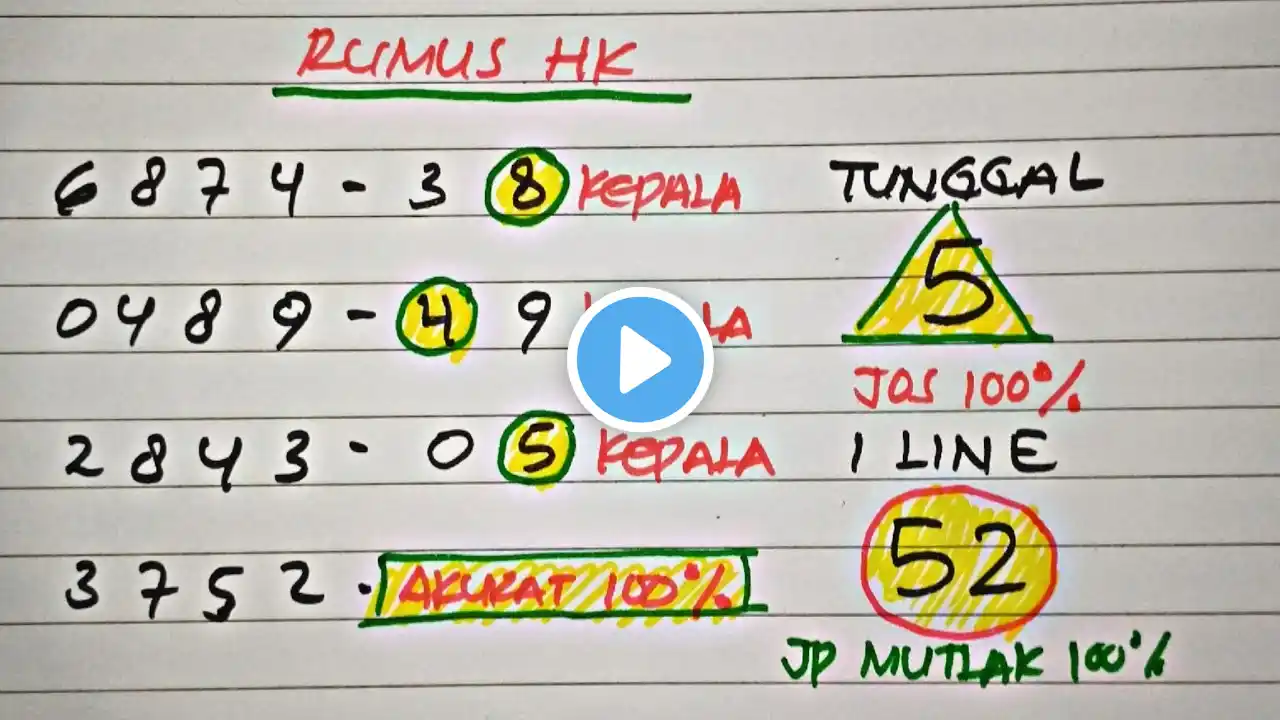 RUMUS HK
6874 - 38 KEPALA
0489 - 49
2843 - 05 KEPALA
3752 - AKURAT 100%
TUNGGAL
5
JOS 100%
1 LINE
52
JP MUTLAK 100%